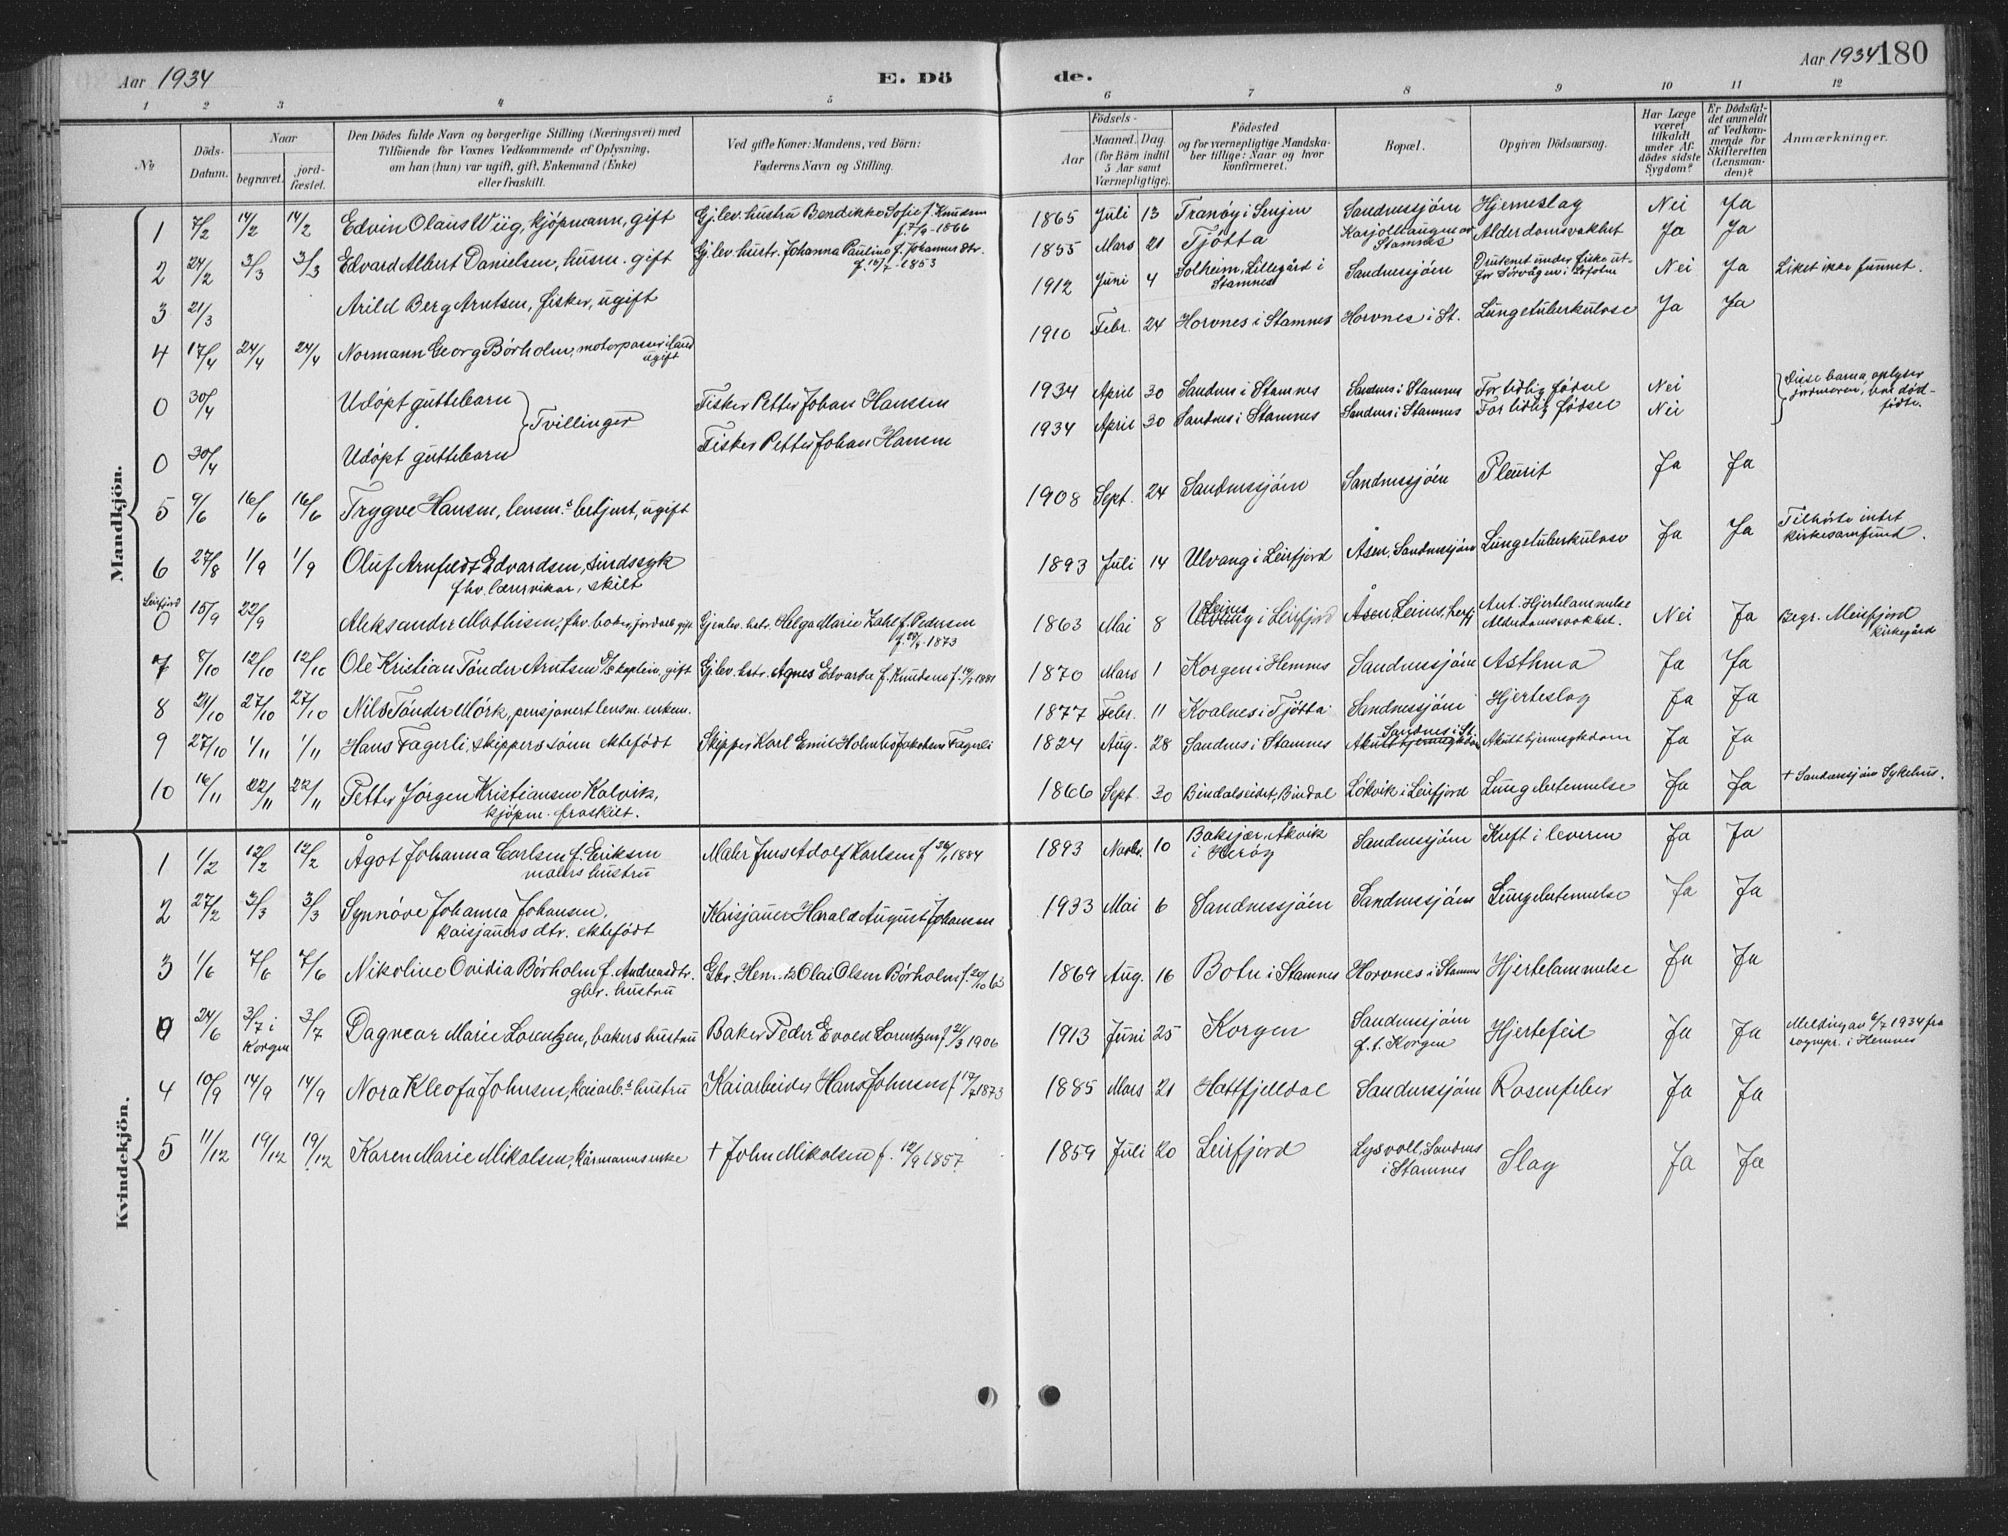 Aar 1934
E. Dö de.
Aar 1934 180
1 2 3 4 5 6 7 8 9 10 11 12
No
Döds-Datum.
Naar
begravet.
jordfæstet.
Den Dödes fulde Navn og borgerlige Stilling (Næringsvei) med
Tilföiende for Voxnes Vedkommende af Oplysning,
om han (hun) var ugift, gift, Enkemand (Enke)
eller fraskilt.
Ved gifte Koner: Mandens, ved Börn:
Faderens Navn og Stilling.
Födsels-
Aar
Maaned. Dag
(for Börn indtil
5 Aar samt
Værnepligtige).
Födested
og for værnepligtige Mandska-
ber tillige: Naar og hvor
konfirmeret.
Bopæl.
Opgiven Dödsaarsag.
Har Læge
været
tilkaldt
under Af-
dödes sidste
Sygdom?
Er Dödsfal-
det anmeldt
af Vedkom-
mende for
Skifteretten
(Lensman-
den)?
Anmærkninger.
Mandkjön.
1 7/2 14/2 14/2 Edvin Olaus Wiig, kjöpmann, gift Gj.lev. hustru Bendikke Sofie f. Knudsen f. 7/9-1866 1865 Juli 13 Tranøy i Senjen Sandnessjøen Hjerneslag Nei Ja
2 24/2 3/3 3/3 Edvard Albert Danielsen, husm. gift Gj.lev. hustr. Johanna Pauline f. Johannesdtr. f. 15/7-1853 1855 Mars 21 Tjøtta Stamnes Alderdomssvakhet Ja Ja
3 21/3 Arild Berg Arntsen, fisker, ugift 1912 Juni 4 Solheim, Lillegård i Stamnes Sandnessjøen Druknet under fiske ut-
for Sørvågen i Lofoten Nei Ja Liket ikke funnet.
4 17/4 24/4 24/4 Normann Georg Børholm, motorpasser i land ugift 1910 Febr. 24 Horvnes i Stamnes Horvnes i St. Lungetuberkulose Ja Ja
0 30/4 Udøpt guttebarn } Tvillinger Fisker Petter Johan Hansen 1934 April 30 Sandnes i Stamnes Sandnes i Stamnes For tidlig fødsel Nei } Disse barna, oplyser
jormoren, var død-
fødte.
0 30/4 Udøpt guttebarn Fisker Petter Johan Hansen 1934 April 30 Sandnes i Stamnes Sandnes i Stamnes For tidlig fødsel Nei
5 9/6 16/6 16/6 Trygve Hansen, lensm.s betjent, ugift 1908 Sept. 24 Sandnessjøen Sandnessjøen Pleurit Ja Ja
6 27/8 1/9 1/9 Oluf Arnfeldt Edvardsen, sindssyk
fhv. lærervikar, skilt 1893 Juli 14 Ulvang i Leirfjord Åsen, Sandnessjøen Lungetuberkulose Ja Ja Tilhørte intet
kirkesamfund.
Leirfjord
0 15/9 22/9 Aleksander Mathisen, fhv. jordarb. gift Gjenlev. hstr. Helga Marie Zahl f. Pedersen f. 1873 1863 Mai 8 Leines i Leirfjord Leines, Ant. Hjertelammelse
Alderdomssvakhet. Nei Ja Begr. Meisfjord
kirkegård
7 8/10 12/10 12/10 Ole Kristian Tønder Arntsen, gift Gj.lev. hstr. Agnes Edvarda f. Knudsen 1881 1870 Mars 1 Korgen i Hemnes Sandnessjøen Asthma Ja Ja
8 21/10 27/10 27/10 Nils Tønder Mörk, pensjonert lensm. enkem. 1877 Febr. 11 Kvalnes i Tjøtta Sandnessjøen Hjerteslag Ja Ja
9 27/10 1/11 1/11 Hans Fagerli, skippers sønn ektefødt Skipper Karl Emil Holmbo Jakobsen Fagerli 1824 Aug. 28 Sandnes i Stamnes Sandnes i St. Akutt hjernesykdom Ja Ja
10 16/11 22/11 22/11 Petter Jørgen Kristiansen Kalvik,
kjøpm. fraskilt. 1866 Sept. 30 Bindalseidet, Bindal Løkvik i Leirfjord Lungebetennelse Ja Ja + Sandnessjøen Sykehus.
Kvindekjön.
1 1/2 12/2 12/2 Ågot Johanna Carlsen f. Eriksen
malers hustru Maler Jens Adolf Karlsen f 26/1 1884 1893 Novbr. 10 Baksjær, Åkvik
i Herøy Sandnessjøen Kreft i leveren Ja Ja
2 27/2 3/3 3/3 Synnöve Johanna Johansen,
kaisjauers dtr. ektefødt Kaisjauer Harald August Johansen 1933 Mai 6 Sandnessjøen Sandnessjøen Lungebetennelse Ja Ja
3 1/6 7/6 7/6 Nikoline Ovidia Børholm f. Andreasdtr.
gbr. hustru Gbr. Olai Olsen Børholm f. 24/10 63 1869 Aug. 16 Botn i Stamnes Horvnes i Stamnes Hjertelammelse Ja Ja
0 24/6 3/7 i Korgen 3/7 Dagmar Marie Lorentzen, bakers hustru Baker Peder Evald Lorentzen f 21/3 1906 1913 Juni 25 Korgen Sandnessjøen
f.t. Korgen Hjertefeil Ja Ja Melding av 6/7 1934 fra
sognepr. i Hemnes
4 10/9 14/9 14/9 Nora Kleofa Johnsen, kaiarb.s hustru Kaiarbeider Hans Johnsen f 17/7 1873 1885 Mars 21 Hattfjelldal Sandnessjøen Rosenfeber Ja Ja
5 11/12 19/12 19/12 Karen Marie Mikalsen, kårmannsenke + John Mikalsen f. 12/9 1857 1859 Juli 20 Leirfjord Lysvoll, Sandnes
i Stamnes Slag Ja Ja